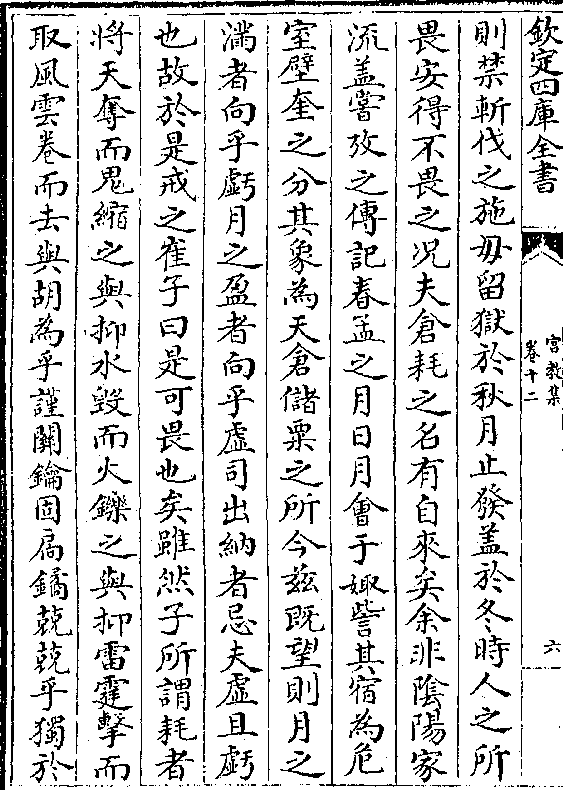 欽定四庫全書
宫教集
卷十二
六
則禁斬伐之施毋留獄於秋月止發盖於冬時人之所
畏安得不畏之况夫倉耗之名有自來矣余非隂陽家
流盖嘗攷之傳記春孟之月日月會于娵訾其宿為危
室壁奎之分其象為天倉儲粟之所今兹既望則月之
滿者向乎虧月之盈者向乎虚司出納者忌夫虚且虧
也故於是戒之崔子曰是可畏也矣雖然子所謂耗者
將天奪而鬼縮之與抑水毁而火鑠之與抑雷霆擊而
取風雲卷而去與胡為乎謹關鑰固扃鐍兢兢乎獨於